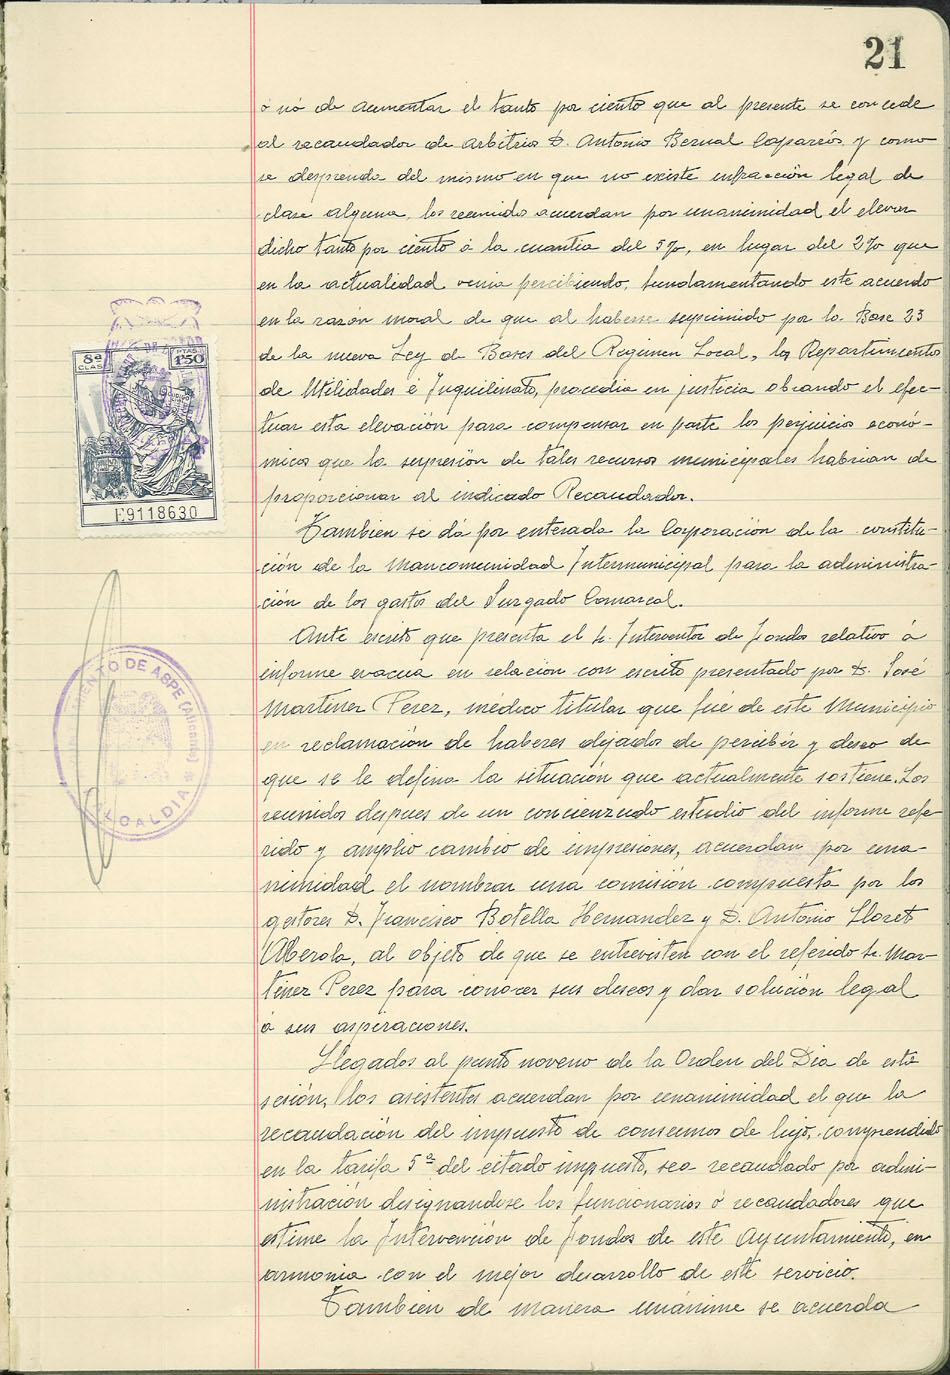 21
ó nó de aumentar el tanto por ciento que al presente se concede
al recaudador de arbitrios D. Antonio Bernal Caparrós y como
se desprende del mismo en que no existe infracción legal de
clase alguna, los reunidos acuerdan por unanimidad el elevar
dicho tanto por ciento á la cuantia del 5%, en lugar del 2% que
en la actualidad venia percibiendo, fundamentando este acuerdo
en la razón moral de que al haberse suprimido por la Base 23
de la nueva Ley de Bases del Regimen Local, los Repartimiento
de Utilidades é Inquilinato, procedia en justicia obrando el efec-
tuar esta elevación para compensar en parte los perjuicios econó-
micos que la supresión de tales recursos municipales habrian de
proporcionar al indicado Recaudador.
Tambien se dá por enterada la Corporación de la constitu-
ción de la Mancomunidad Intermunicipal para la administra-
ción de los gastos del Juzgado Comarcal.
Ante escrito que presenta el Sr. Interventor de Fondos relativo á
informe evacua en relacion con escrito presentado por D. José
Martinez Perez, médico titular que fué de este Municipio
en reclamación de haberes dejados de percibir y deseo de
que se le defina la situación que actualmente sostiene. Los
reunidos despues de un concienzudo estudio del informe refe-
rido y amplio cambio de impresiones, acuerdan por una-
nimidad el nombrar una comisión compuesta por los
gestores D. Francisco Botella Hernandez y D. Antonio Lloret
Alberola, al objeto de que se entrevisten con el referido Sr. Mar-
tinez Perez para conocer sus deseos y dar solución legal
á sus aspiraciones.
Llegados al punto noveno de la Orden del Dia de esta
sesión, los asistentes acuerdan por unanimidad el que la
recaudación del impuesto de consumos de lujo, comprendido
en la tarifa 5ª del citado impuesto, sea recaudado por admi-
nistración designandose los funcionarios ó recaudadores que
estime la Intervención de Fondos de este Ayuntamiento, en
armonia con el mejor desarrollo de este servicio.
Tambien de manera unánime se acuerda
8ª CLASE
PTAS 1'50
E9118630
MIENTO DE ASPE (Alicante)
ALCALDIA